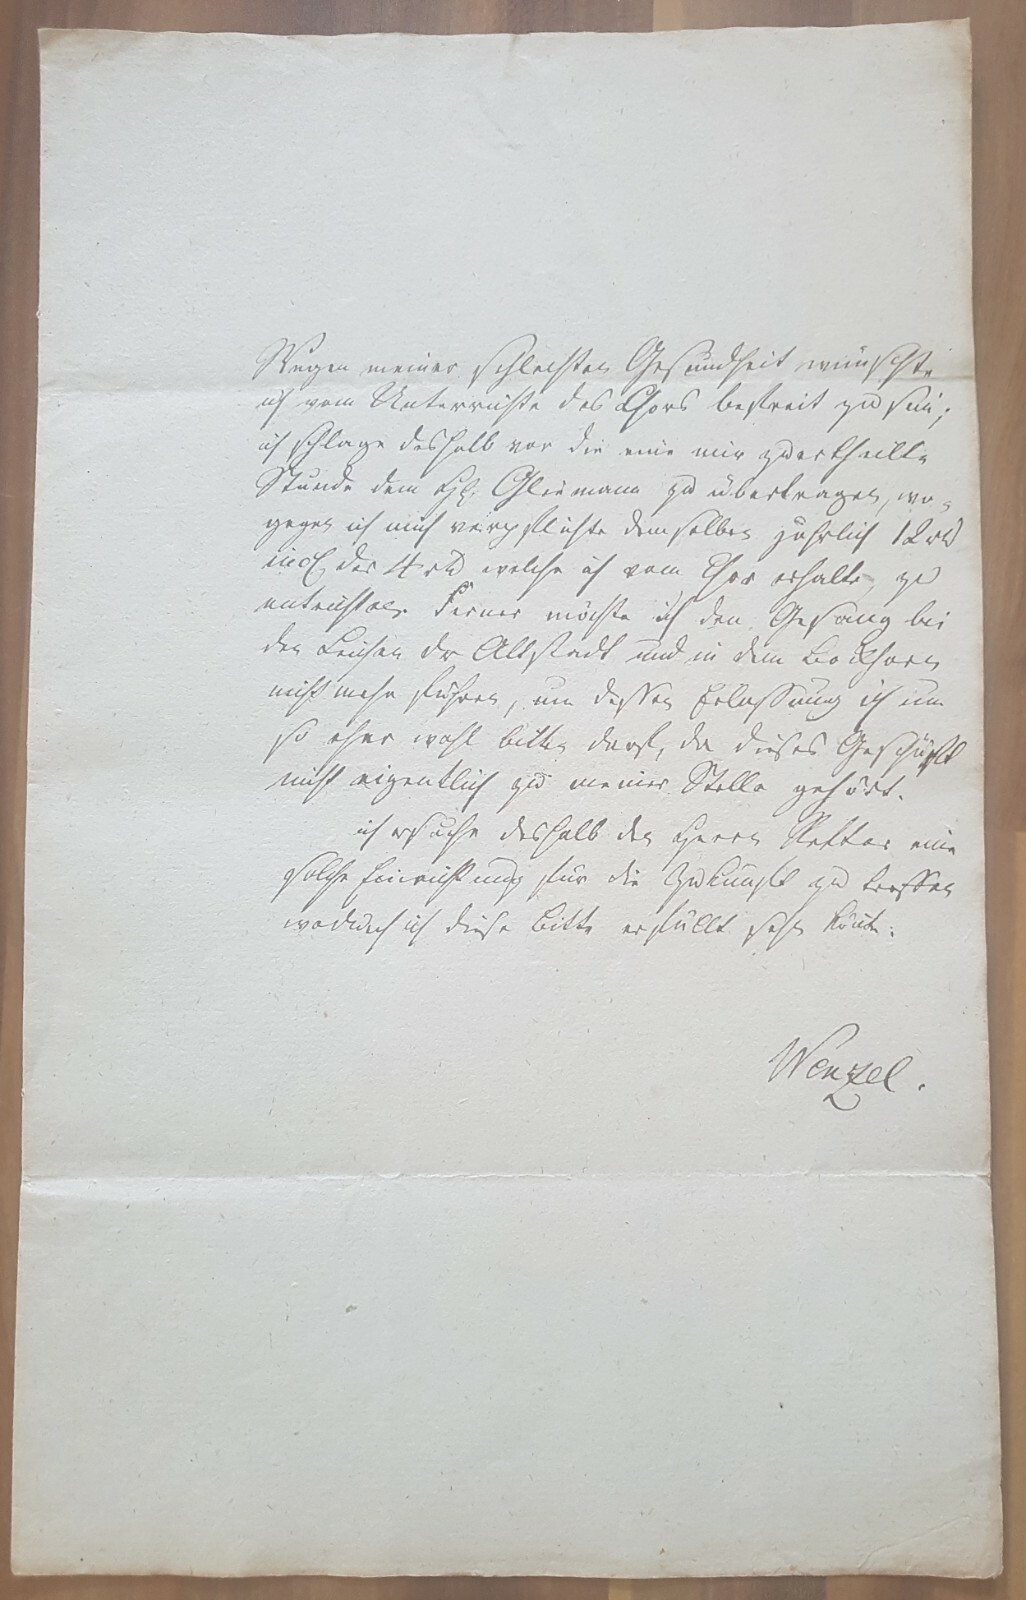 Wegen meiner schlechten Gesundheit wünschte
ich vom Unterrichte des Chors befreit zu sein;
ich schlage deshalb vor die eine mir zuertheilte
Stunde dem H. Gleimann zu übertragen, wo-
gegen ich mich verpflichte demselben jährlich 12 rtl
incl. der 4 rtl welche ich vom Chor erhalte, zu
entrichten. Ferner möchte ich den Gesang bei
den Leichen der Altstadt und in dem
nicht mehr führen, um dessen Erlassung ich um
so eher wohl bitten darf, da dieses Geschäft
nicht eigentlich zu meiner Stelle gehört.
ich ersuche deshalb den Herrn Rektor eine
solche Einrichtung für die Zukunft zu treffen
wodurch ich diese Bitte erfüllt sehn könte.
Wenzel.